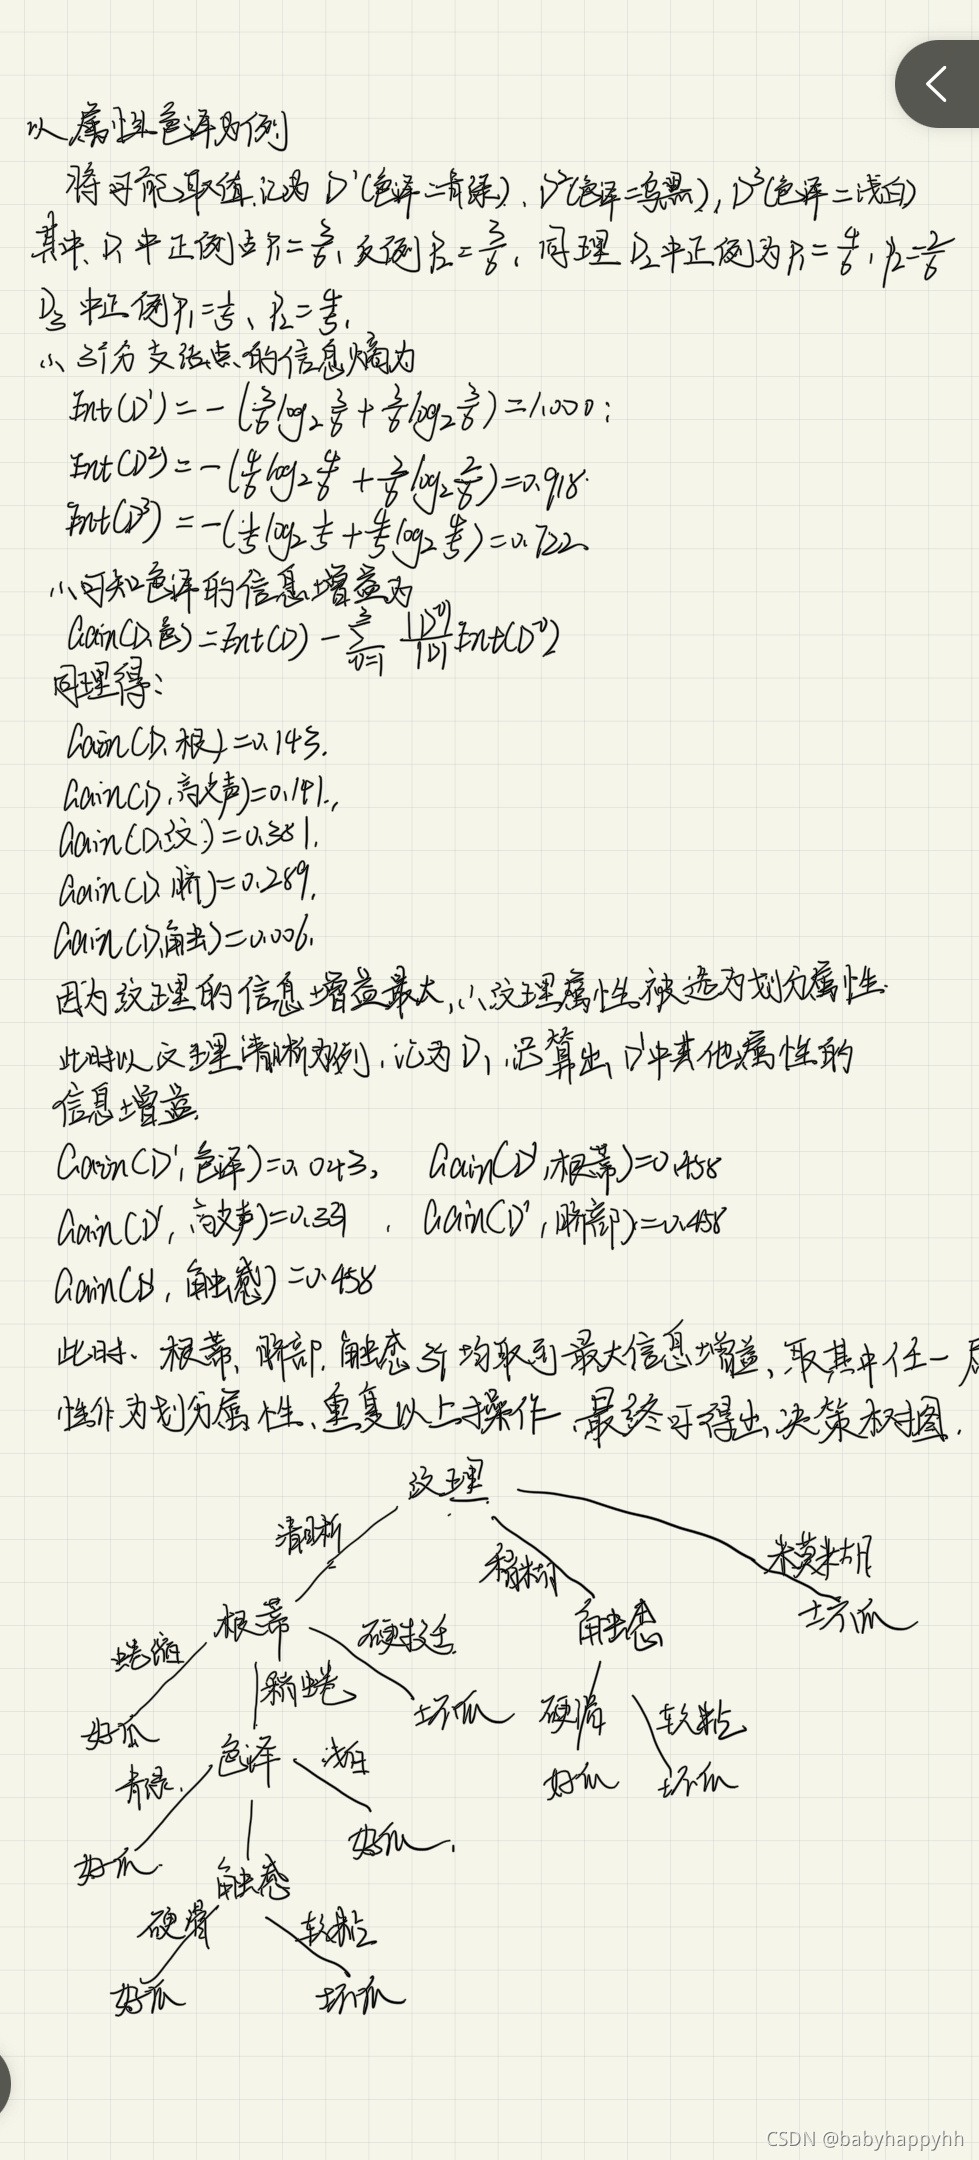 以属性色泽为例
将可能取值记为 D¹(色泽=青绿)、D²(色泽=乌黑), D³(色泽=浅白)
其中, D₁中正例占P₁=3/6, 反例P₂=3/6, 同理 D₂中正例为P₁=4/6, P₂=2/6
D₃ 中正例P₁=1/5、P₂=4/5,
∴ 3个分支结点的信息熵为
Ent(D¹)=-(3/6log₂3/6+3/6log₂3/6)=1.000;
Ent(D²)=-(4/6log₂4/6+2/6log₂2/6)=0.918.
Ent(D³)=-(1/5log₂1/5+4/5log₂4/5)=0.722.
∴可知色泽的信息增益为
Gain(D,色)=Ent(D)-∑³ᵥ₌₁ |Dᵛ|/|D| Ent(Dᵛ)
同理得:
Gain(D,根)=0.143.
Gain(D,敲声)=0.141.,
Gain(D,纹)=0.381.
Gain(D,脐)=0.289.
Gain(D,触)=0.006.
因为纹理的信息增益最大,∴纹理属性被选为划分属性.
此时以纹理清晰为例,记为D¹,计算出D¹中其他属性的
信息增益.
Gain(D¹,色泽)=0.043, Gain(D¹,根蒂)=0.458
Gain(D¹,敲声)=0.331, Gain(D¹,脐部)=0.458
Gain(D¹,触感)=0.458
此时、根蒂、脐部,触感3个均取到最大信息增益、取其中任一属
性作为划分属性、重复以上操作、最终可得出决策树图.
纹理
清晰 稍糊 模糊
根蒂 触感 坏瓜
蜷缩 稍蜷 硬挺 硬滑 软粘
好瓜 色泽 坏瓜 好瓜 坏瓜
青绿. 浅白
好瓜. 触感 好瓜.
硬滑 软粘
好瓜 坏瓜
CSDN @babyhappyhh